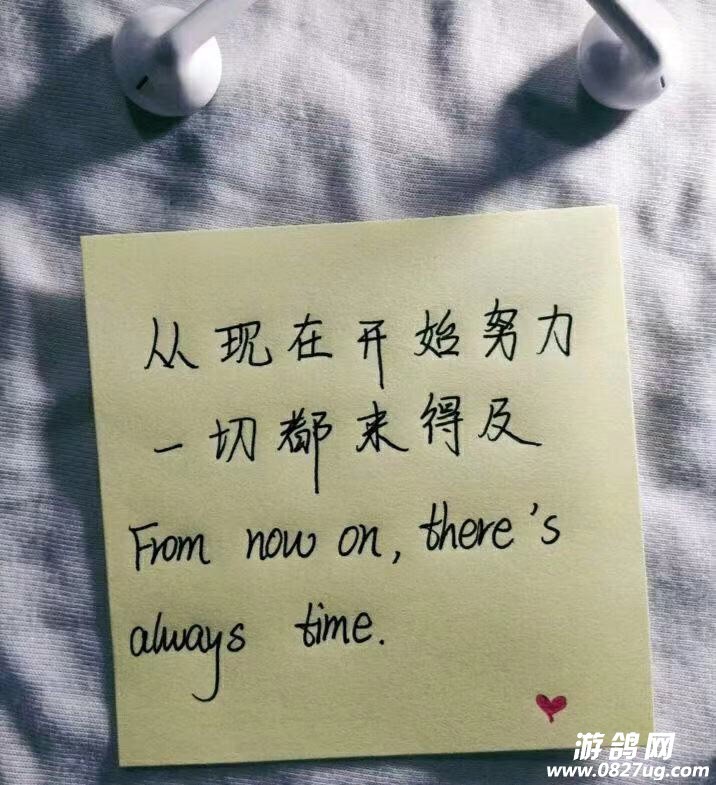 从现在开始努力
一切都来得及
From now on, there's
always time.
游鸽网
www.0827ug.com